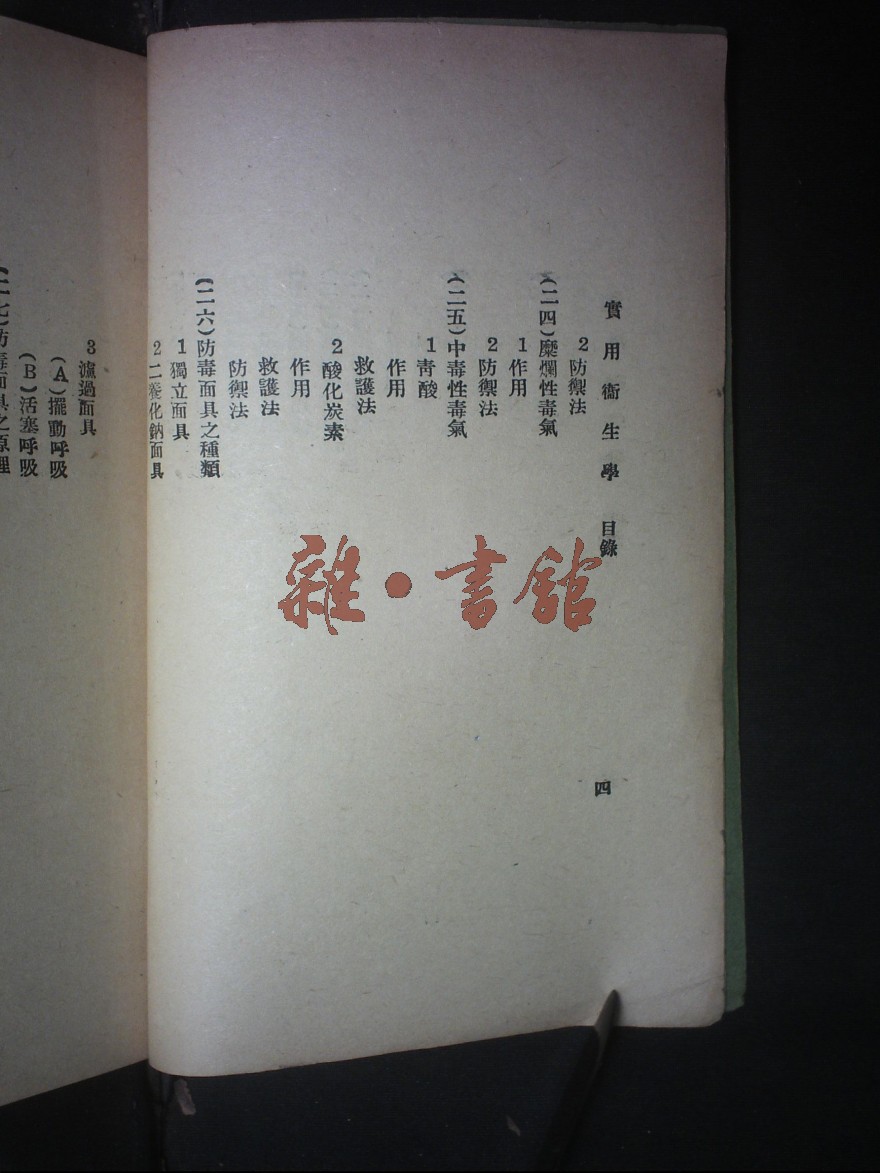 實用衞生學 目錄
四
2 防禦法
(二四)糜爛性毒氣
1 作用
2 防禦法
(二五)中毒性毒氣
1 青酸
作用
救護法
2 酸化炭素
作用
救護法
防禦法
(二六)防毒面具之種類
1 獨立面具
2 二養化鈉面具
3 濾過面具
(A)擺動呼吸
(B)活塞呼吸
(二七)防毒面具之原理
雜·書館